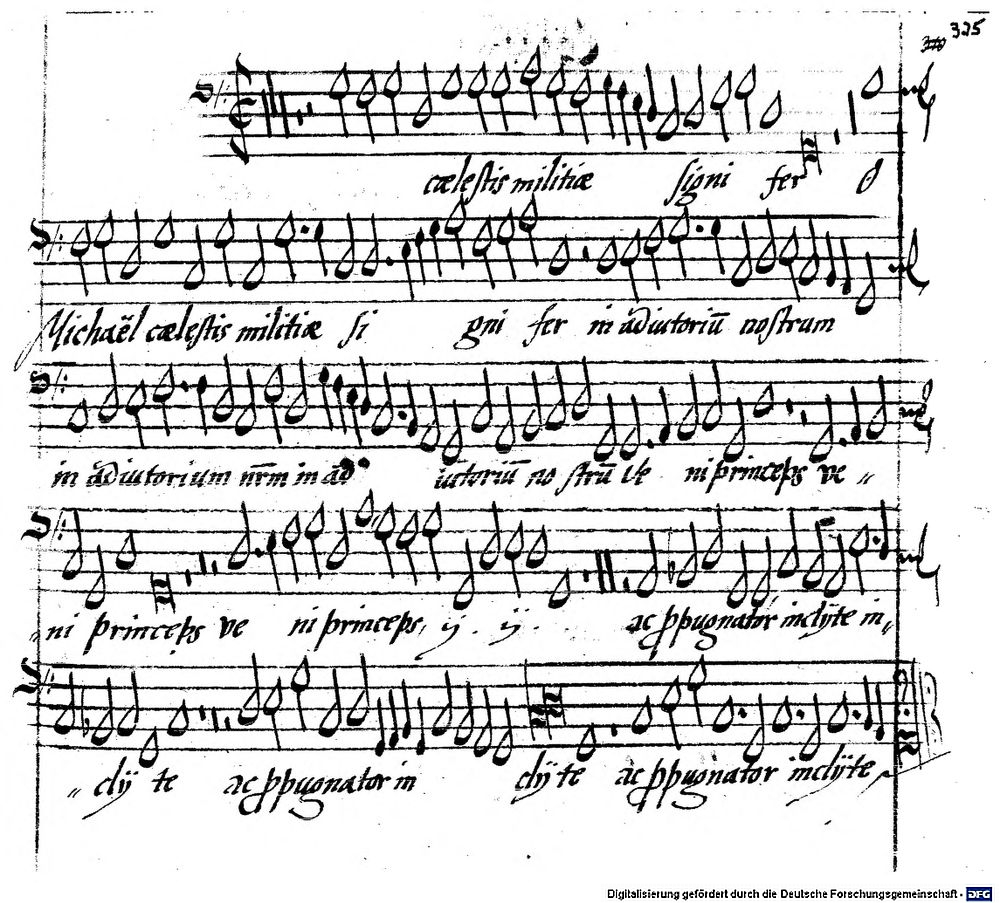 325
cælestis militiæ signi fer ô
Michaël cælestis militiæ si gni fer in ādiutoriū nostrum
in ādiutorium nr̄m in ad iutoriū no strū Ve ni princeps ve "
"ni princeps ve ni princeps, ij . ij . ac ꝓpugnator inclÿte in"
" clÿ te ac ꝓpugnator in clÿ te ac ꝓpugnator inclÿte
Digitalisierung gefördert durch die Deutsche Forschungsgemeinschaft - DFG